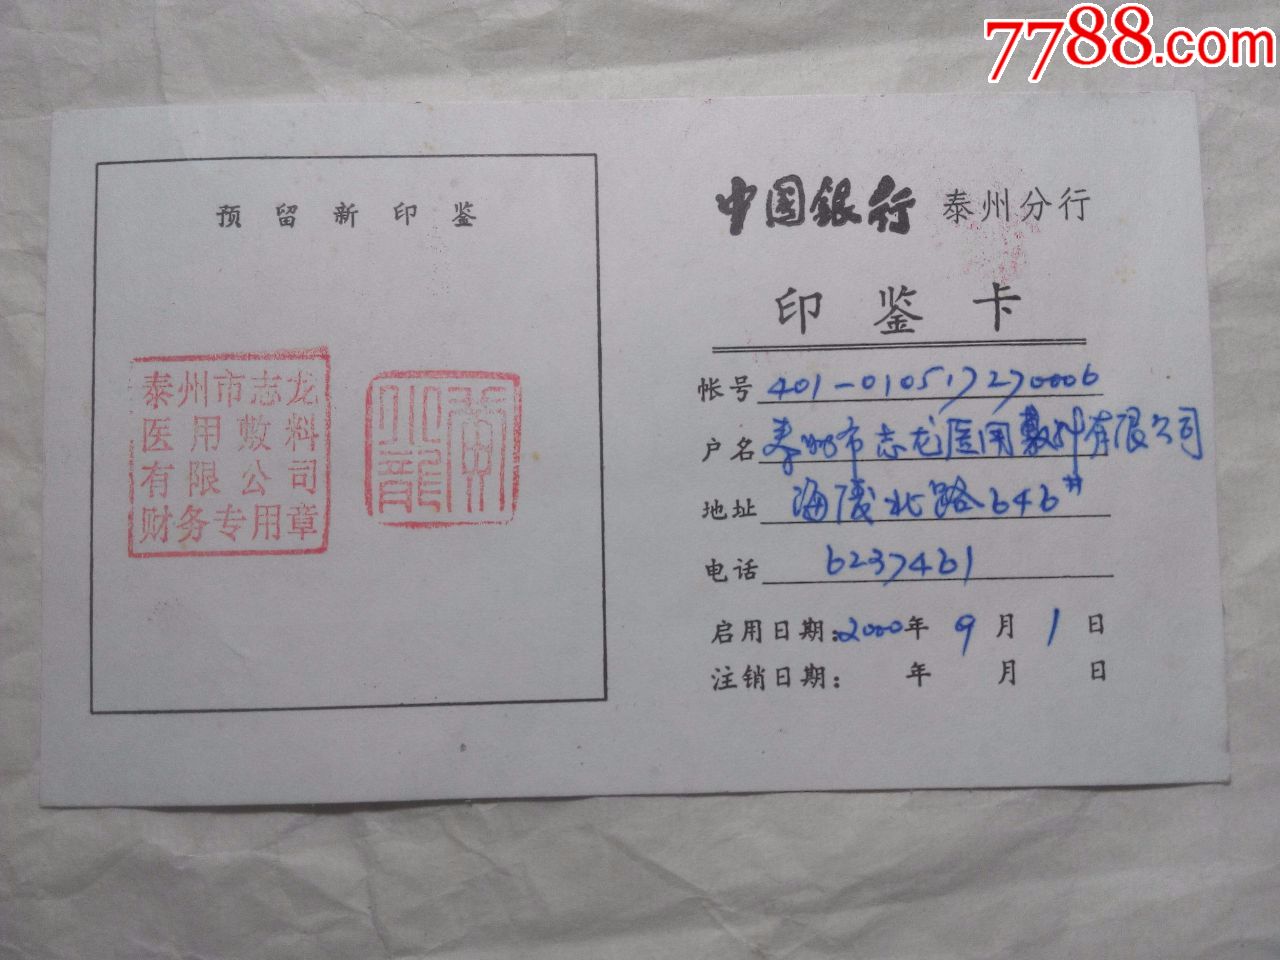 7788.com
预留新印鉴
泰州市志龙
医用敷料
有限公司
财务专用章
中国银行 泰州分行
印鉴卡
帐号 401-010517270006
户名 泰州市志龙医用敷料有限公司
地址 海陵北路646#
电话 6237461
启用日期:2000年 9 月 1 日
注销日期: 年 月 日